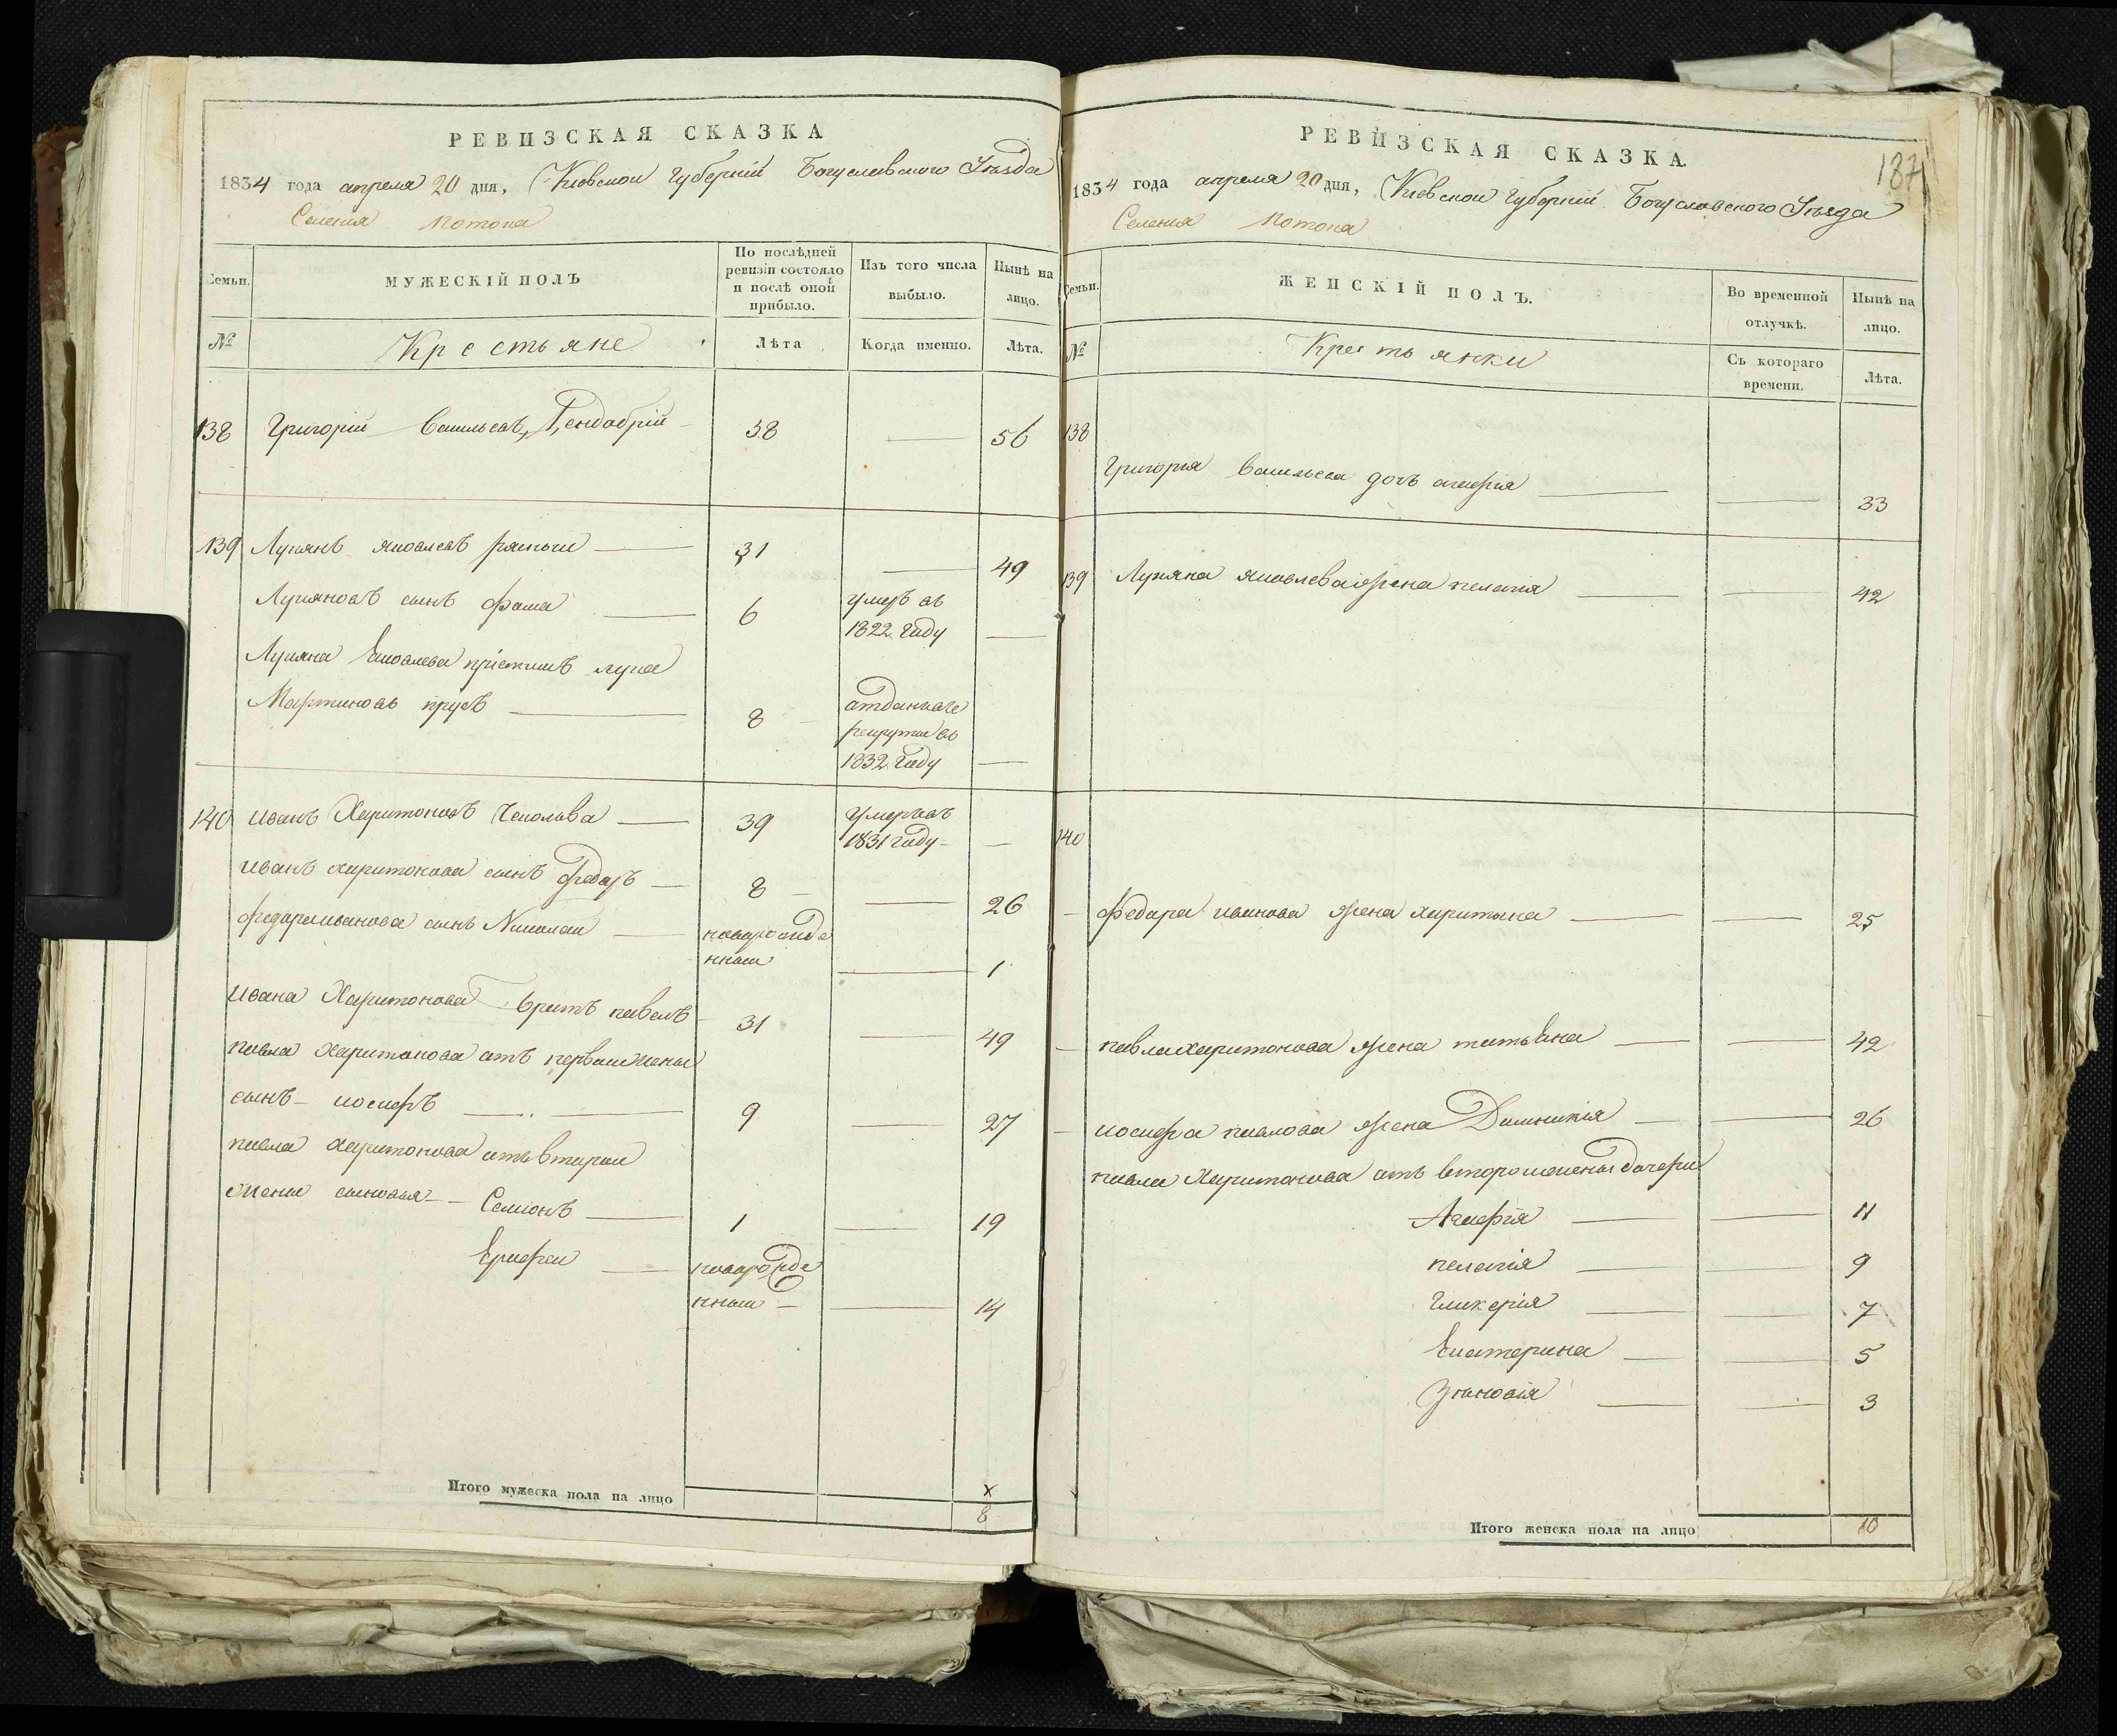 РЕВИЗСКАЯ СКАЗКА
1834 года апреля 20 дня, Киевской Губерніи Богуславского Уѣзда
Селенія Потока
Семьи.
МУЖЕСКІЙ ПОЛЪ
По послѣдней
ревизіи состояло
и послѣ оной
прибыло.
Изъ того числа
выбыло.
Нынѣ на
лицо.
№
Крестьяне
Лѣта
Когда именно.
Лѣта.
138 Григорій Васильевъ 38 56
139 Лукянъ Яковлевъ 31 49
Лукяновъ сынъ Фома 6 умеръ въ
1822 году
Лукяна Яковлева пріемишъ лука
Мартиновъ 8 отданъ въ
рекруты въ
1832 году
140 Иванъ Харитоновъ 39 умеръ въ
1831 году
Иванъ харитонова сынъ Федоръ 8 26
Федора иванова сынъ Николай новорожде
нный 1
Ивана Харитонова братъ павелъ 31 49
павла Харитонова отъ первой жены
сынъ иосифъ 9 27
павла харитонова отъ второй
жены сыновья Семионъ 1 19
Ерофей новорожде
нный 14
Итого мужеска пола на лицо
х
8
РЕВИЗСКАЯ СКАЗКА.
187
1834 года апреля 20 дня, Киевской Губерніи Богуславского Уѣзда
Селенія Потока
Семьи.
ЖЕНСКІЙ ПОЛЪ.
Во временной
отлучкѣ.
Нынѣ на
лицо.
№
Крестьянки
Съ котораго
времени.
Лѣта.
138
Григорія Васильева дочь агафія 33
139 Лукяна яковлева жена пелагія 42
140
Федора иванова жена харитына 25
павла харитонова жена татьяна 42
иосифа павлова жена Домникія 26
павла Харитонова отъ второй жены дочери
Агафія 11
пелагія 9
Гликерія 7
Екатерина 5
Зиновія 3
Итого женска пола на лицо 10